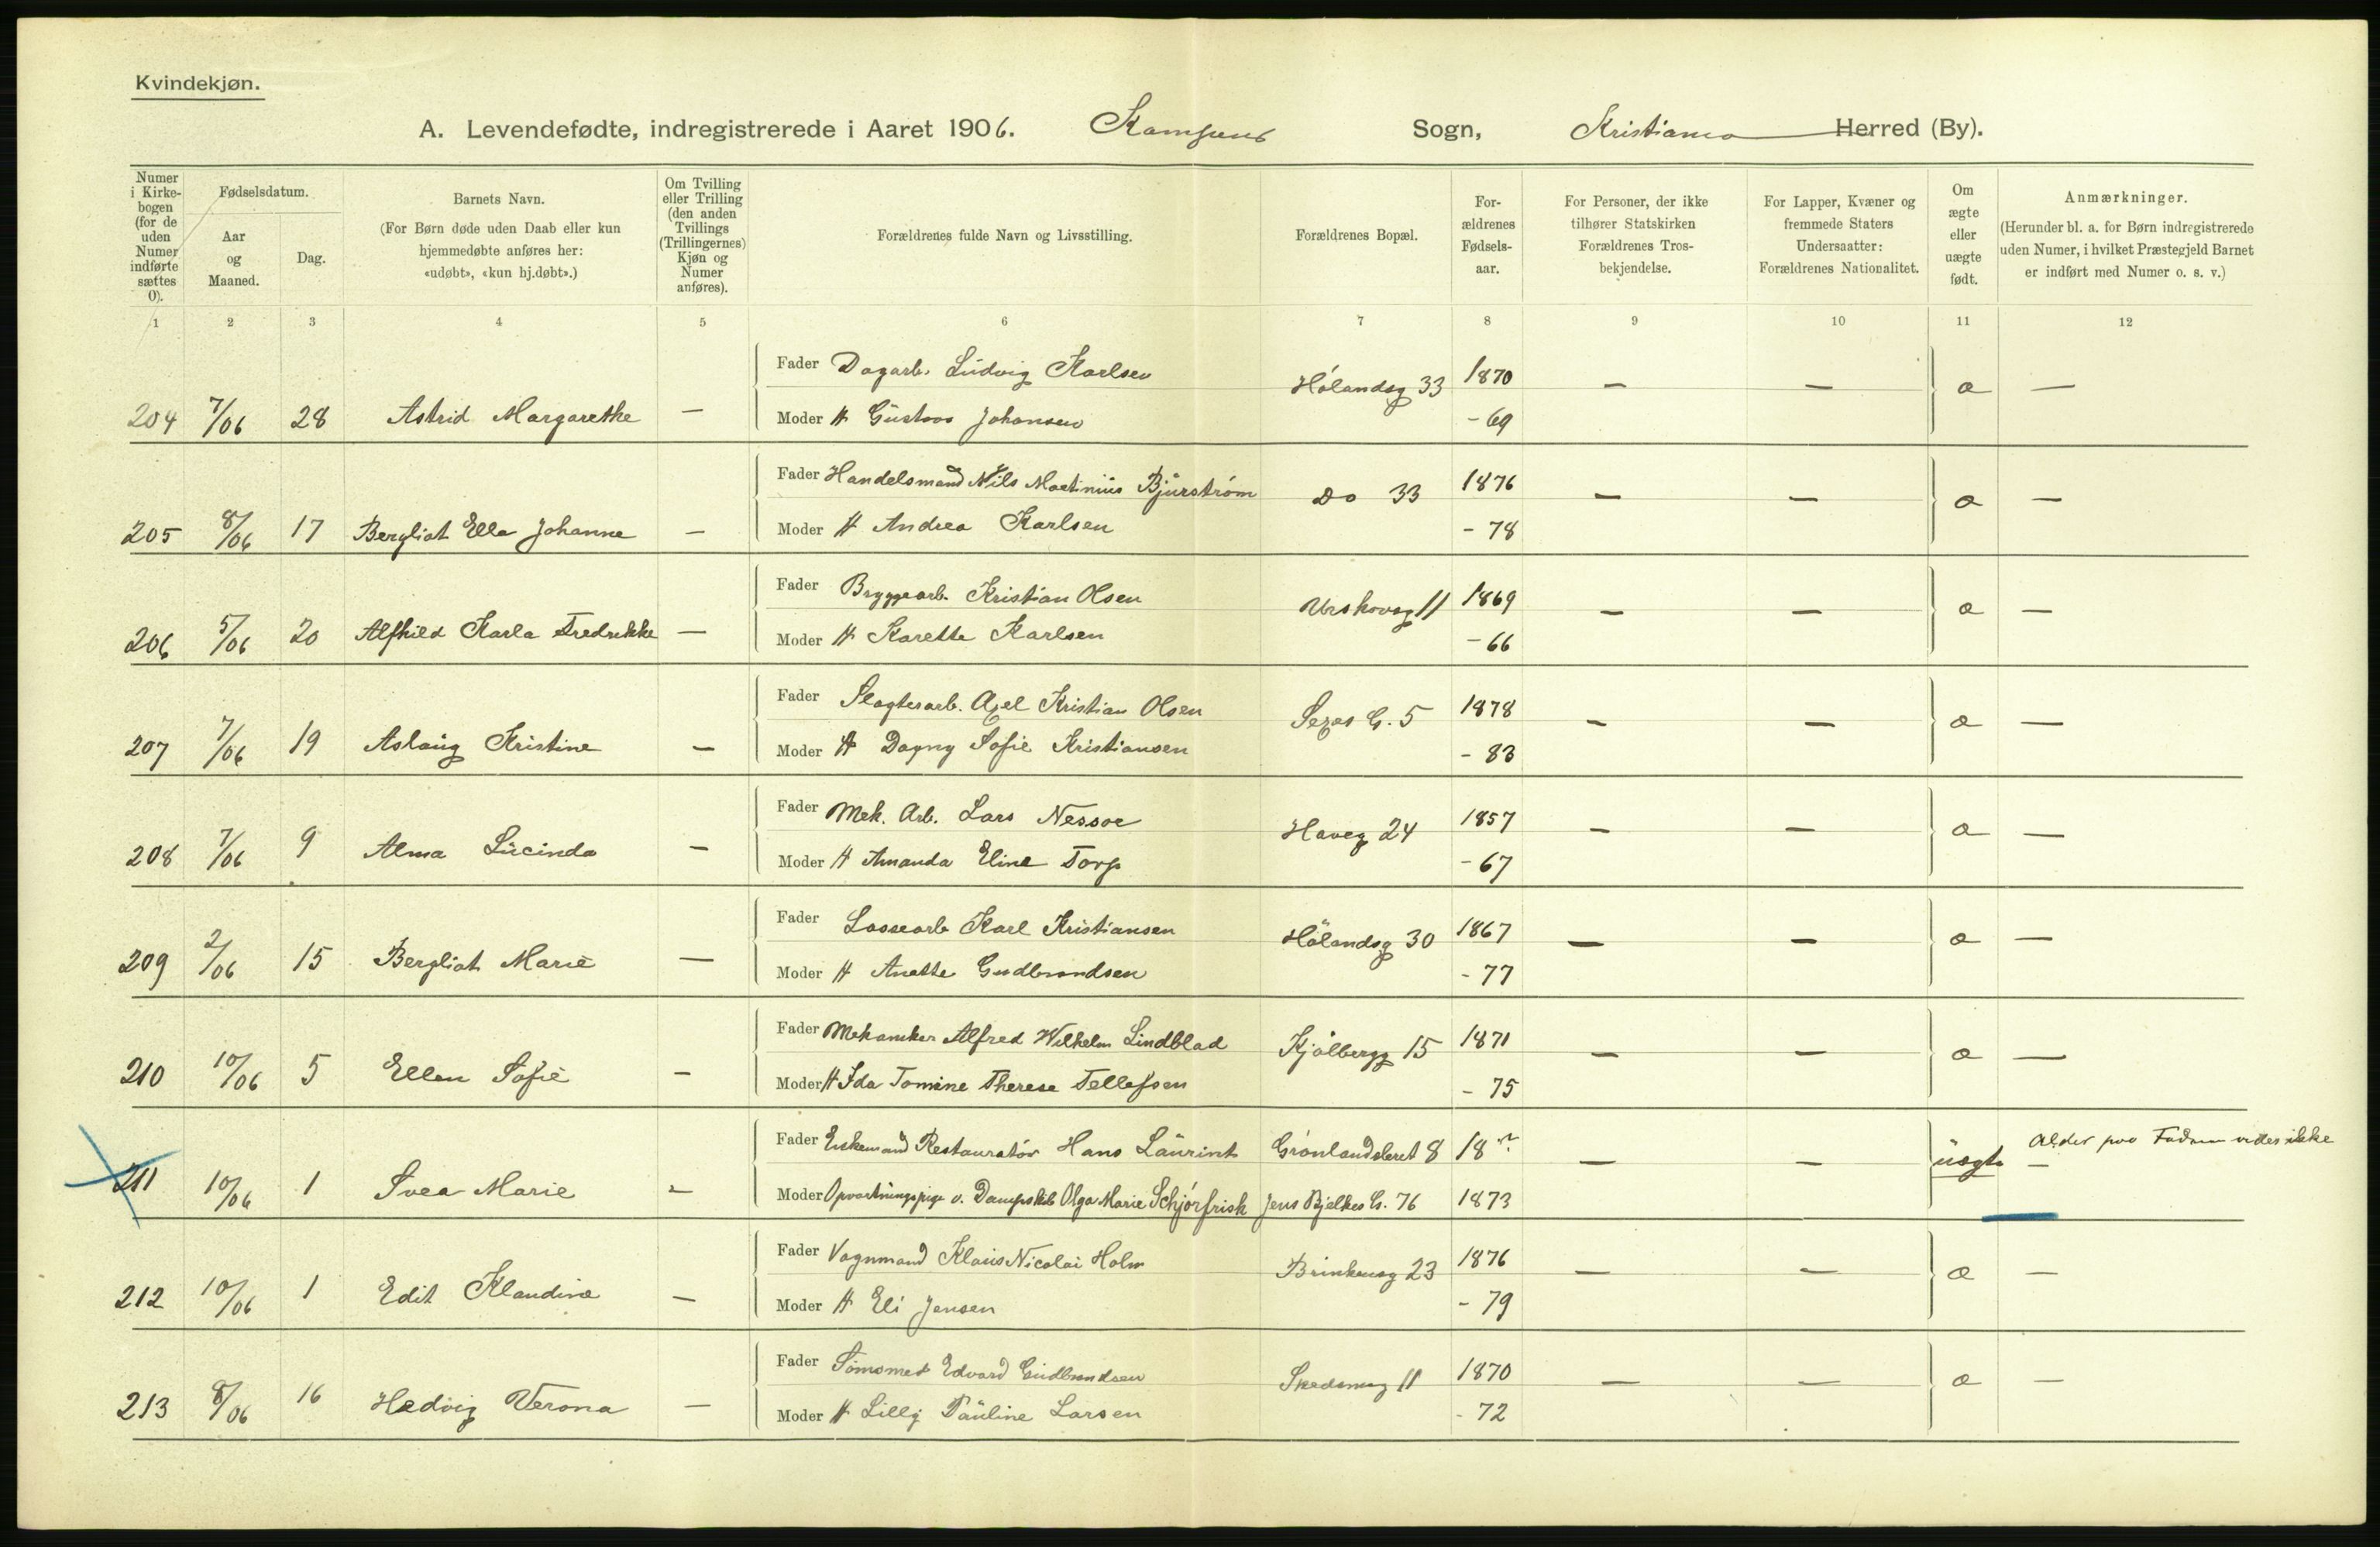 Kvindekjøn.
A. Levendefødte, indregistrerede i Aaret 1906. Kampens Sogn, Kristiania Herred (By).
Numer i Kirkebogen (for de uden Numer indførte sættes 0).
Fødselsdatum.
Aar og Maaned.
Dag.
Barnets Navn.
(For Børn døde uden Daab eller kun hjemmedøbte anføres her: «udøbt», «kun hj.døbt».)
Om Tvilling eller Trilling (den anden Tvillings (Trillingernes) Kjøn og Numer anføres).
Forældrenes fulde Navn og Livsstilling.
Forældrenes Bopæl.
Forældrenes Fødselsaar.
For Personer, der ikke tilhører Statskirken Forældrenes Trosbekjendelse.
For Lapper, Kvæner og fremmede Staters Undersaatter: Forældrenes Nationalitet.
Om ægte eller uægte født.
Anmærkninger.
(Herunder bl. a. for Børn indregistrerede uden Numer, i hvilket Præstegjeld Barnet er indført med Numer o. s. v.)
1 2 3 4 5 6 7 8 9 10 11 12
Fader Dagarb. Ludvig Karlsen Hølandsg 33 1870 — — æ —
204 7/06 28 Astrid Margarethe — Moder H Gustava Johansen - 69
Fader Handelsmand Nils Martinius Bjurstrøm Do 33 1876 — — æ —
205 8/06 17 Bergliot Ella Johanne — Moder H Andrea Karlsen - 78
Fader Bryggearb. Kristian Olsen Urskovsg 11 1869 — — æ —
206 5/06 20 Alfhild Karla Fredrikke — Moder H Karette Karlsen - 66
Fader Slagterarb. Axel Kristian Olsen G. 5 1878 — — æ —
207 7/06 19 Aslaug Kristine — Moder H Dagny Sofie Kristiansen - 83
Fader Mek. Arb. Lars Nessøe Haveg 24 1857 — — æ —
208 7/06 9 Alma Lucinda — Moder H Amanda Eline Torp - 67
Fader Lossearb Karl Kristiansen Hølandsg 30 1867 — — æ —
209 2/06 15 Bergliot Marie — Moder H Anette Gudbrandsen - 77
Fader Mekaniker Alfred Wilhelm Lindblad Kjølbergg 15 1871 — — æ —
210 10/06 5 Ellen Sofie — Moder H Ida Tomine Therese Tellefsen - 75
Fader Enkemand Restauratør Hans Laurint Grønlandsleret 8 18 ? — — uægte — Alder paa Faderen vides ikke
211 10/06 1 Svea Marie — Moder Opvartningspige v. Dampskib Olga Marie Schjørfrisk Jens Bjelkes G. 76 1873
Fader Vognmand Klaus Nicolai Holm Brinkensg 23 1876 — — æ —
212 10/06 1 Edit Klaudine — Moder H Eli Jensen - 79
Fader Tømmermd Edvard Gudbrandsen Skedsmog 11 1870 — — æ —
213 8/06 16 Hedvig Verona — Moder H Lilly Pauline Larsen - 72